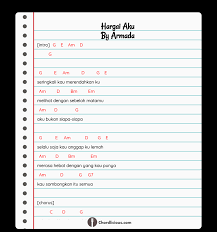 Hargai Aku
By Armada
[intro] G E Am D
G
G E Am D G E
seringkali kau merendahkan ku
Am D Bm Em
melihat dengan sebelah matamu
Am D G
aku bukan siapa-siapa
G E Am D G E
selalu saja kau anggap ku lemah
Am D Bm Em
merasa hebat dengan yang kau punya
Am D G G7
kau sombongkan itu semua
[chorus]
C D G
Chordlicious.com